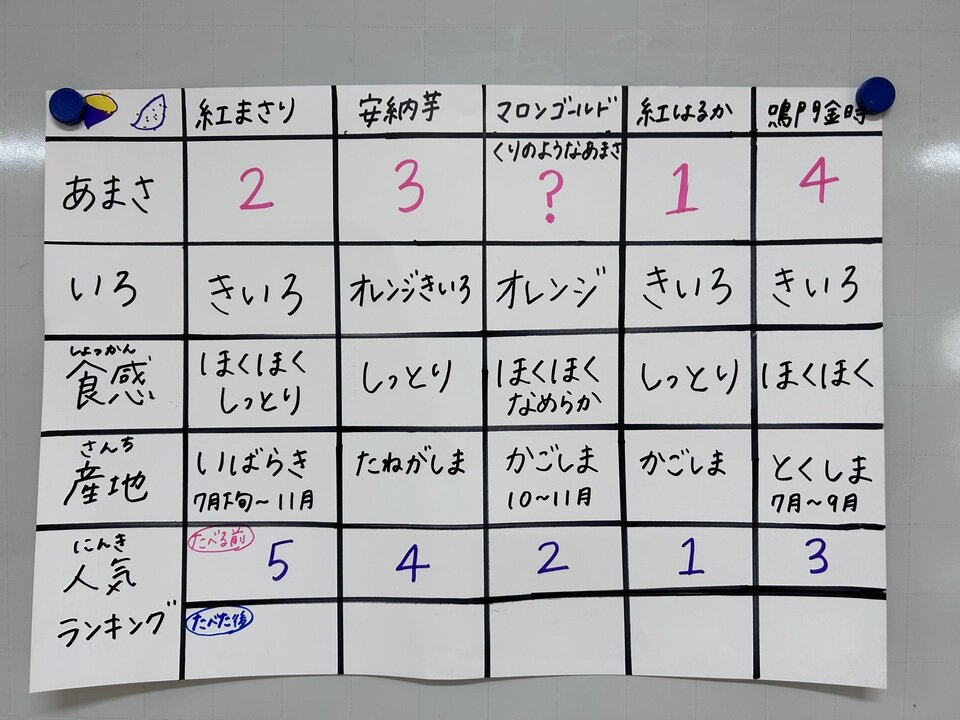 紅まさり 安納芋 マロンゴールド 紅はるか 鳴門金時
くりのようなあまさ
あまさ 2 3 ? 1 4
いろ きいろ オレンジきいろ オレンジ きいろ きいろ
しょっかん
食感 ほくほく しっとり ほくほく しっとり ほくほく
しっとり なめらか
さんち
産地 いばらき たねがしま かごしま かごしま とくしま
7月下旬〜11月 10〜11月 7月〜9月
にんき たべる前
人気 5 4 2 1 3
ランキング たべた後